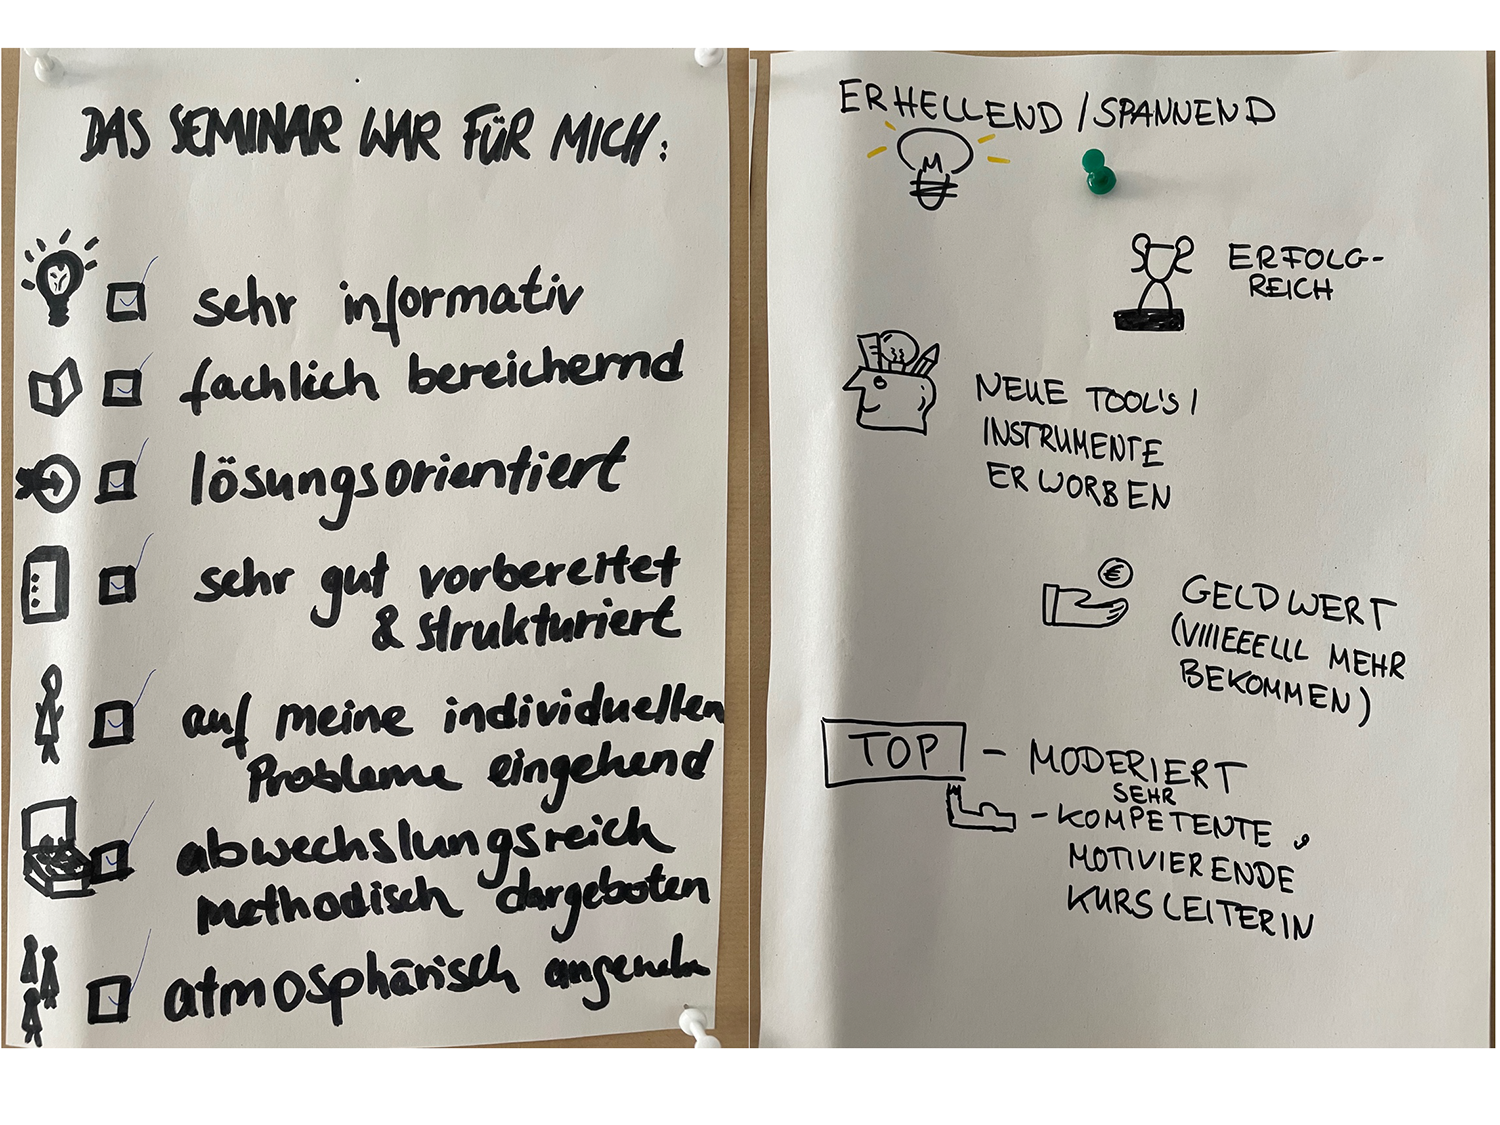 DAS SEMINAR WAR FÜR MICH:
sehr informativ
fachlich bereichernd
lösungsorientiert
sehr gut vorbereitet
& strukturiert
auf meine individuellen
Probleme eingehend
abwechslungsreich
methodisch dargeboten
atmosphärisch angenehm
ERHELLEND / SPANNEND
ERFOLG-
REICH
NEUE TOOL'S /
INSTRUMENTE
ERWORBEN
€
GELDWERT
(VIIIEEELLL MEHR
BEKOMMEN)
TOP - MODERIERT
SEHR
- KOMPETENTE,
MOTIVIERENDE
KURSLEITERIN